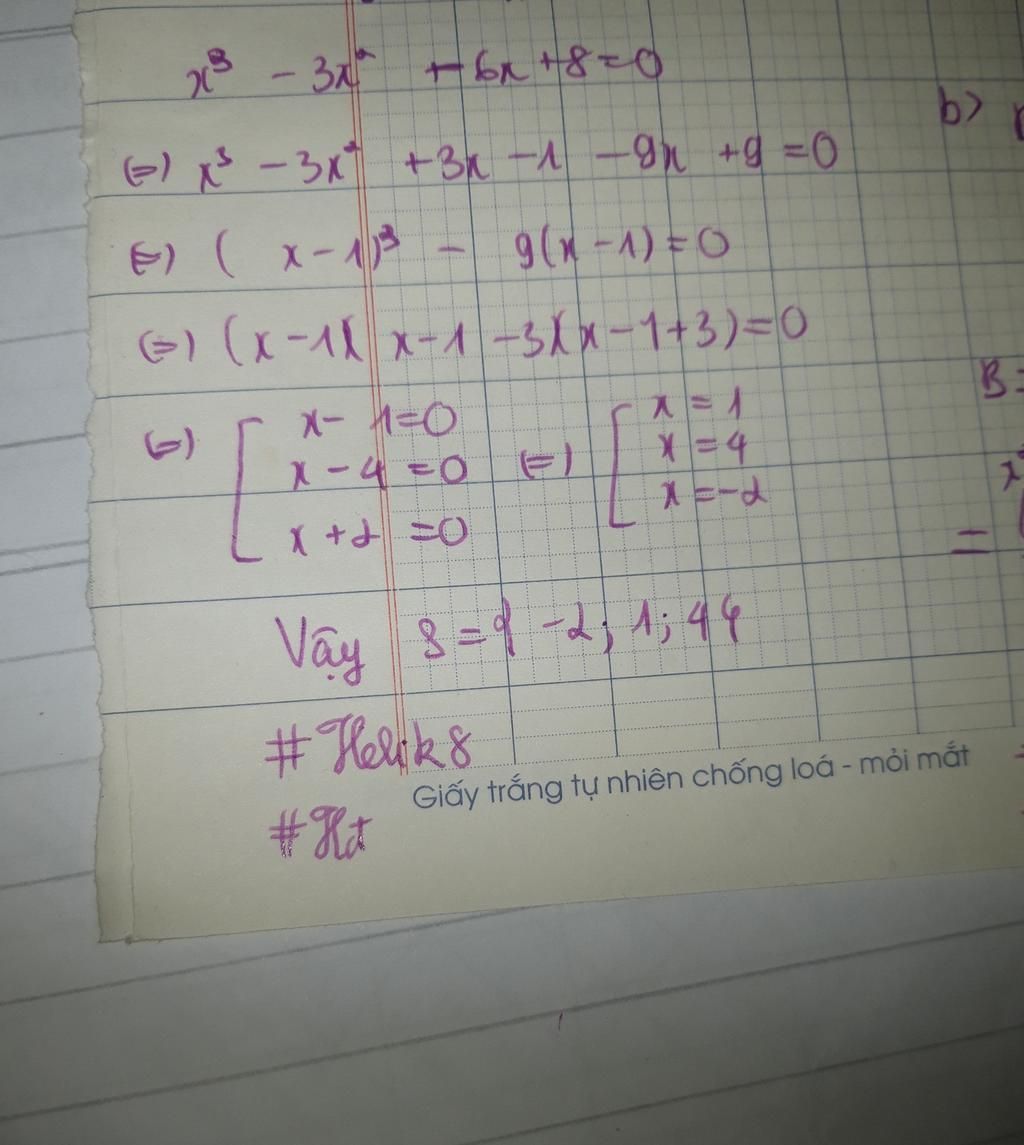 x³ - 3x² - 6x + 8 = 0
b)
(=) x³ - 3x² + 3x - 1 - 9x + 9 = 0
(=) ( x - 1)³ - 9(x - 1) = 0
(=) (x - 1)( x - 1 - 3)(x - 1 + 3) = 0
B =
(=) [ x - 1 = 0 (=) [ x = 1
x - 4 = 0 x = 4
x + 2 = 0 x = -2
=
Vậy S = { -2; 1; 4}
#Helik8
Giấy trắng tự nhiên chống loá - mỏi mắt
#Ht